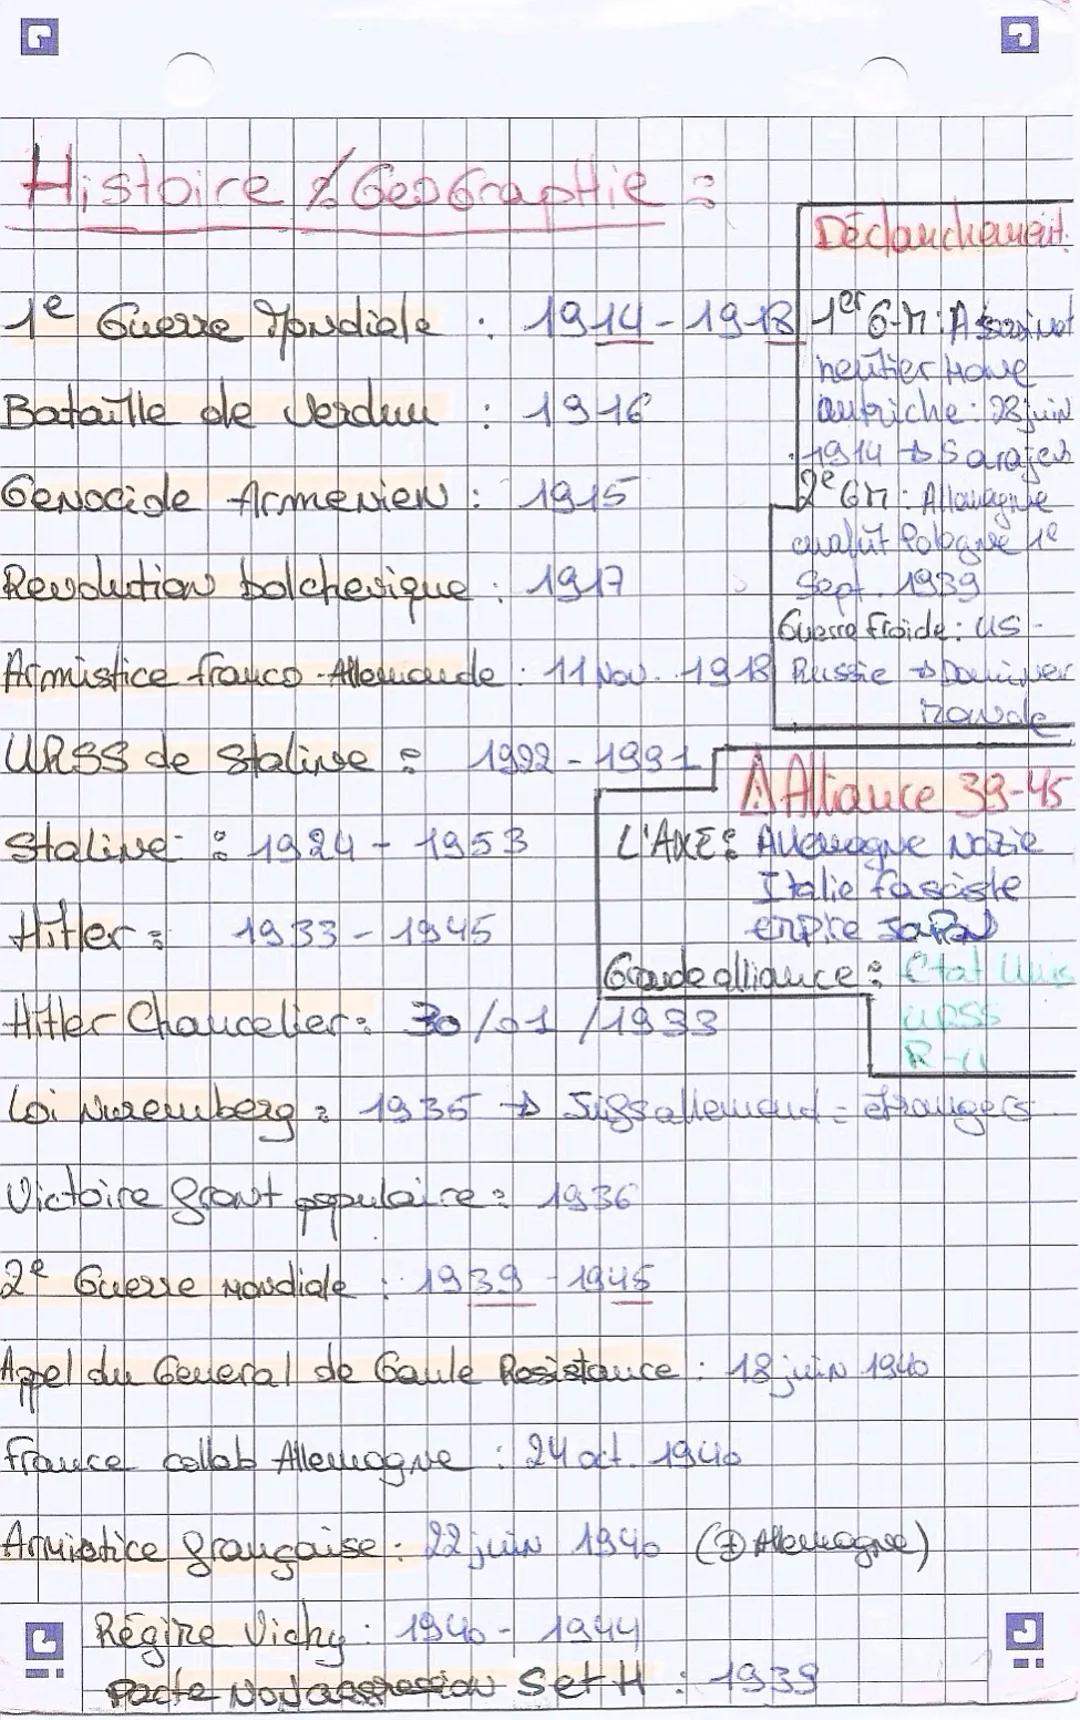 Histoire & GeoGraphie :
1e Guerre Mondiale : 1914 - 1918
Bataille de Verdun : 1916
Genocide Armenien : 1915
Revolution bolchevique : 1917
Armistice franco-Allemande : 11 Nov. 1918
URSS de Staline : 1922 - 1991
Staline : 1924 - 1953
Hitler : 1933 - 1945
Hitler Chancelier : 30/01/1933
Loi Nuremberg : 1935 → Juifs allemand = étrangers
Victoire front populaire : 1936
2e Guerre Mondiale : 1939 - 1945
Appel du General de Gaule Resistance : 18 juin 1940
France collab Allemagne : 24 oct. 1940
Armistice française : 22 juin 1940 (+ Allemagne)
Régime Vichy : 1940 - 1944
Pacte Nonagression S et H : 1939
Déclanchement
1er G.M : Assasinat
heritier
autriche : 28 juin
1914 → Sarajev
2e GM : Allemagne
Pologne 1e
Sept. 1939
Guerre froide : US -
Russie → Dominer
monde
⚠ Alliance 39-45
L'AXE : Allemagne Nazie
Italie fasciste
empire Japon
Grande alliance : Etat Unis
URSS
R-U